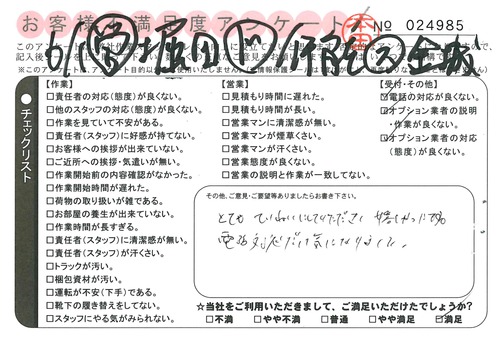 お客様満足度アンケート
No 024985
チェックリスト
【作業】
□責任者の対応(態度)が良くない。
□他のスタッフの対応(態度)が良くない。
□作業を見ていて不安がある。
□責任者(スタッフ)に好感が持てない。
□お客様への挨拶が出来ていない。
□ご近所への挨拶・気遣いが無い。
□作業開始前の内容確認がなかった。
□作業開始時間が遅れた。
□荷物の取り扱いが雑である。
□お部屋の養生が出来ていない。
□作業時間が長すぎる。
□責任者(スタッフ)に清潔感が無い。
□責任者(スタッフ)が汗くさい。
□トラックが汚い。
□梱包資材が汚い。
□運転が不安(下手)である。
□靴下の履き替えをしてない。
□スタッフにやる気がみられない。
【営業】
□見積もり時間に遅れた。
□見積もり時間が長い。
□営業マンに清潔感が無い。
□営業マンが煙草くさい。
□営業マンが汗くさい。
□営業態度が良くない。
□営業の説明と作業が一致してない。
【受付・その他】
☑電話の対応が良くない。
☑オプション業者の説明
・作業が良くない。
☑オプション業者の対応
(態度)が良くない。
その他、ご意見・ご要望等ありましたらお書き下さい。
とても ていねいにしてくださり
電話対応だけ気になりました。
☆当社をご利用いただきまして、ご満足いただけたでしょうか?
□不満 □やや不満 □普通 □やや満足 ☑満足